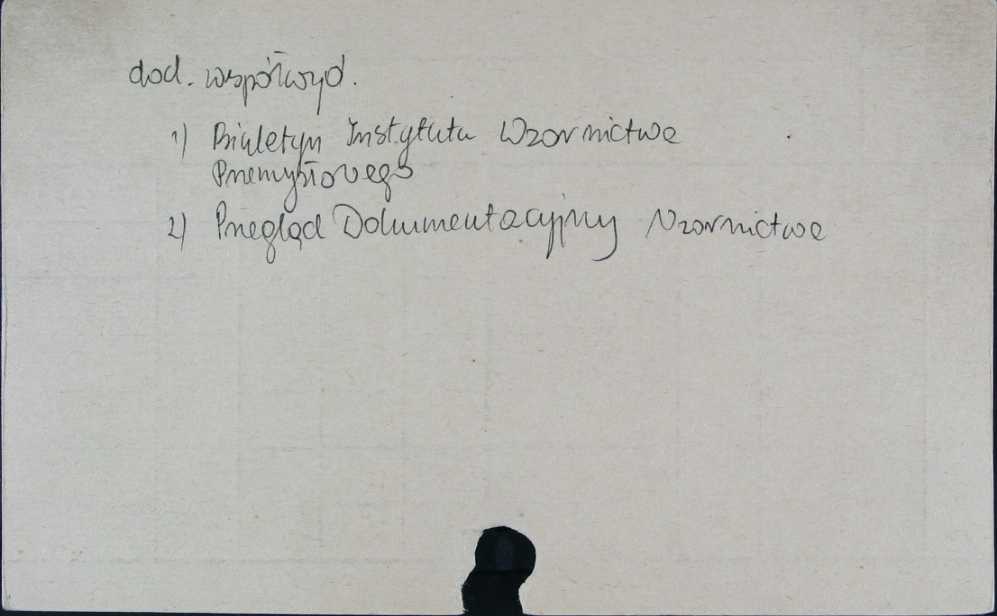 dod. współwyd.
1) Biuletyn Instytutu Wzornictwa
Przemysłowego
2) Przegląd Dokumentacyjny Wzornictwa